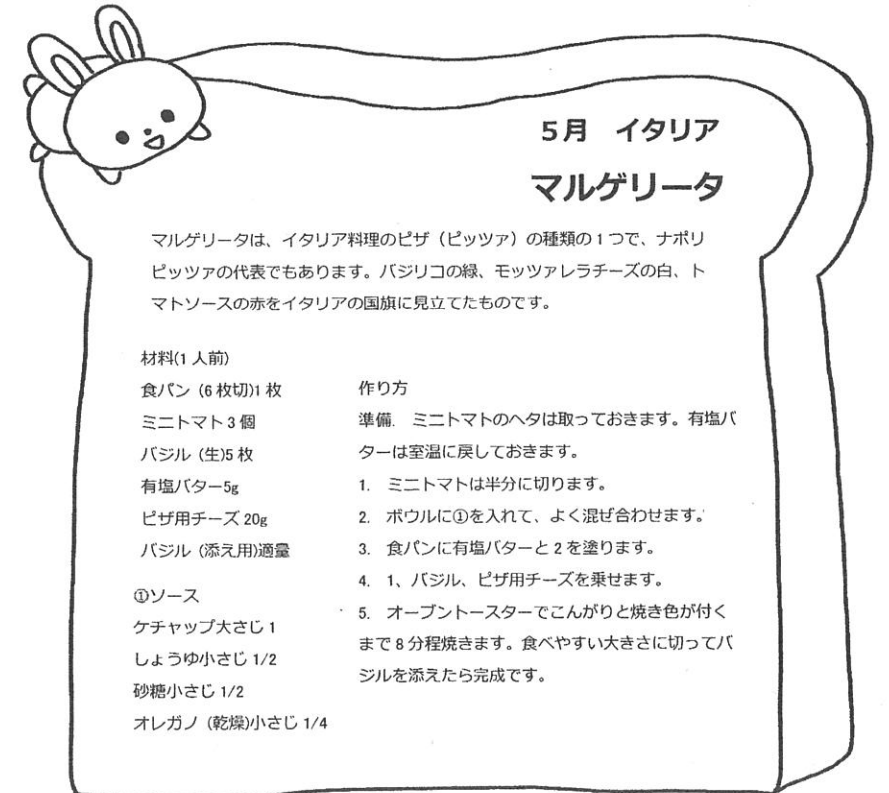 5月 イタリア
マルゲリータ
マルゲリータは、イタリア料理のピザ（ピッツァ）の種類の1つで、ナポリ
ピッツァの代表でもあります。バジリコの緑、モッツァレラチーズの白、ト
マトソースの赤をイタリアの国旗に見立てたものです。
材料(1人前)
食パン (6枚切)1枚
ミニトマト3個
バジル (生)5枚
有塩バター5g
ピザ用チーズ 20g
バジル (添え用)適量
①ソース
ケチャップ大さじ1
しょうゆ小さじ 1/2
砂糖小さじ 1/2
オレガノ (乾燥)小さじ 1/4
作り方
準備. ミニトマトのヘタは取っておきます。有塩バ
ターは室温に戻しておきます。
1. ミニトマトは半分に切ります。
2. ボウルに①を入れて、よく混ぜ合わせます。
3. 食パンに有塩バターと2を塗ります。
4. 1、バジル、ピザ用チーズを乗せます。
5. オーブントースターでこんがりと焼き色が付く
まで8分程焼きます。食べやすい大きさに切ってバ
ジルを添えたら完成です。